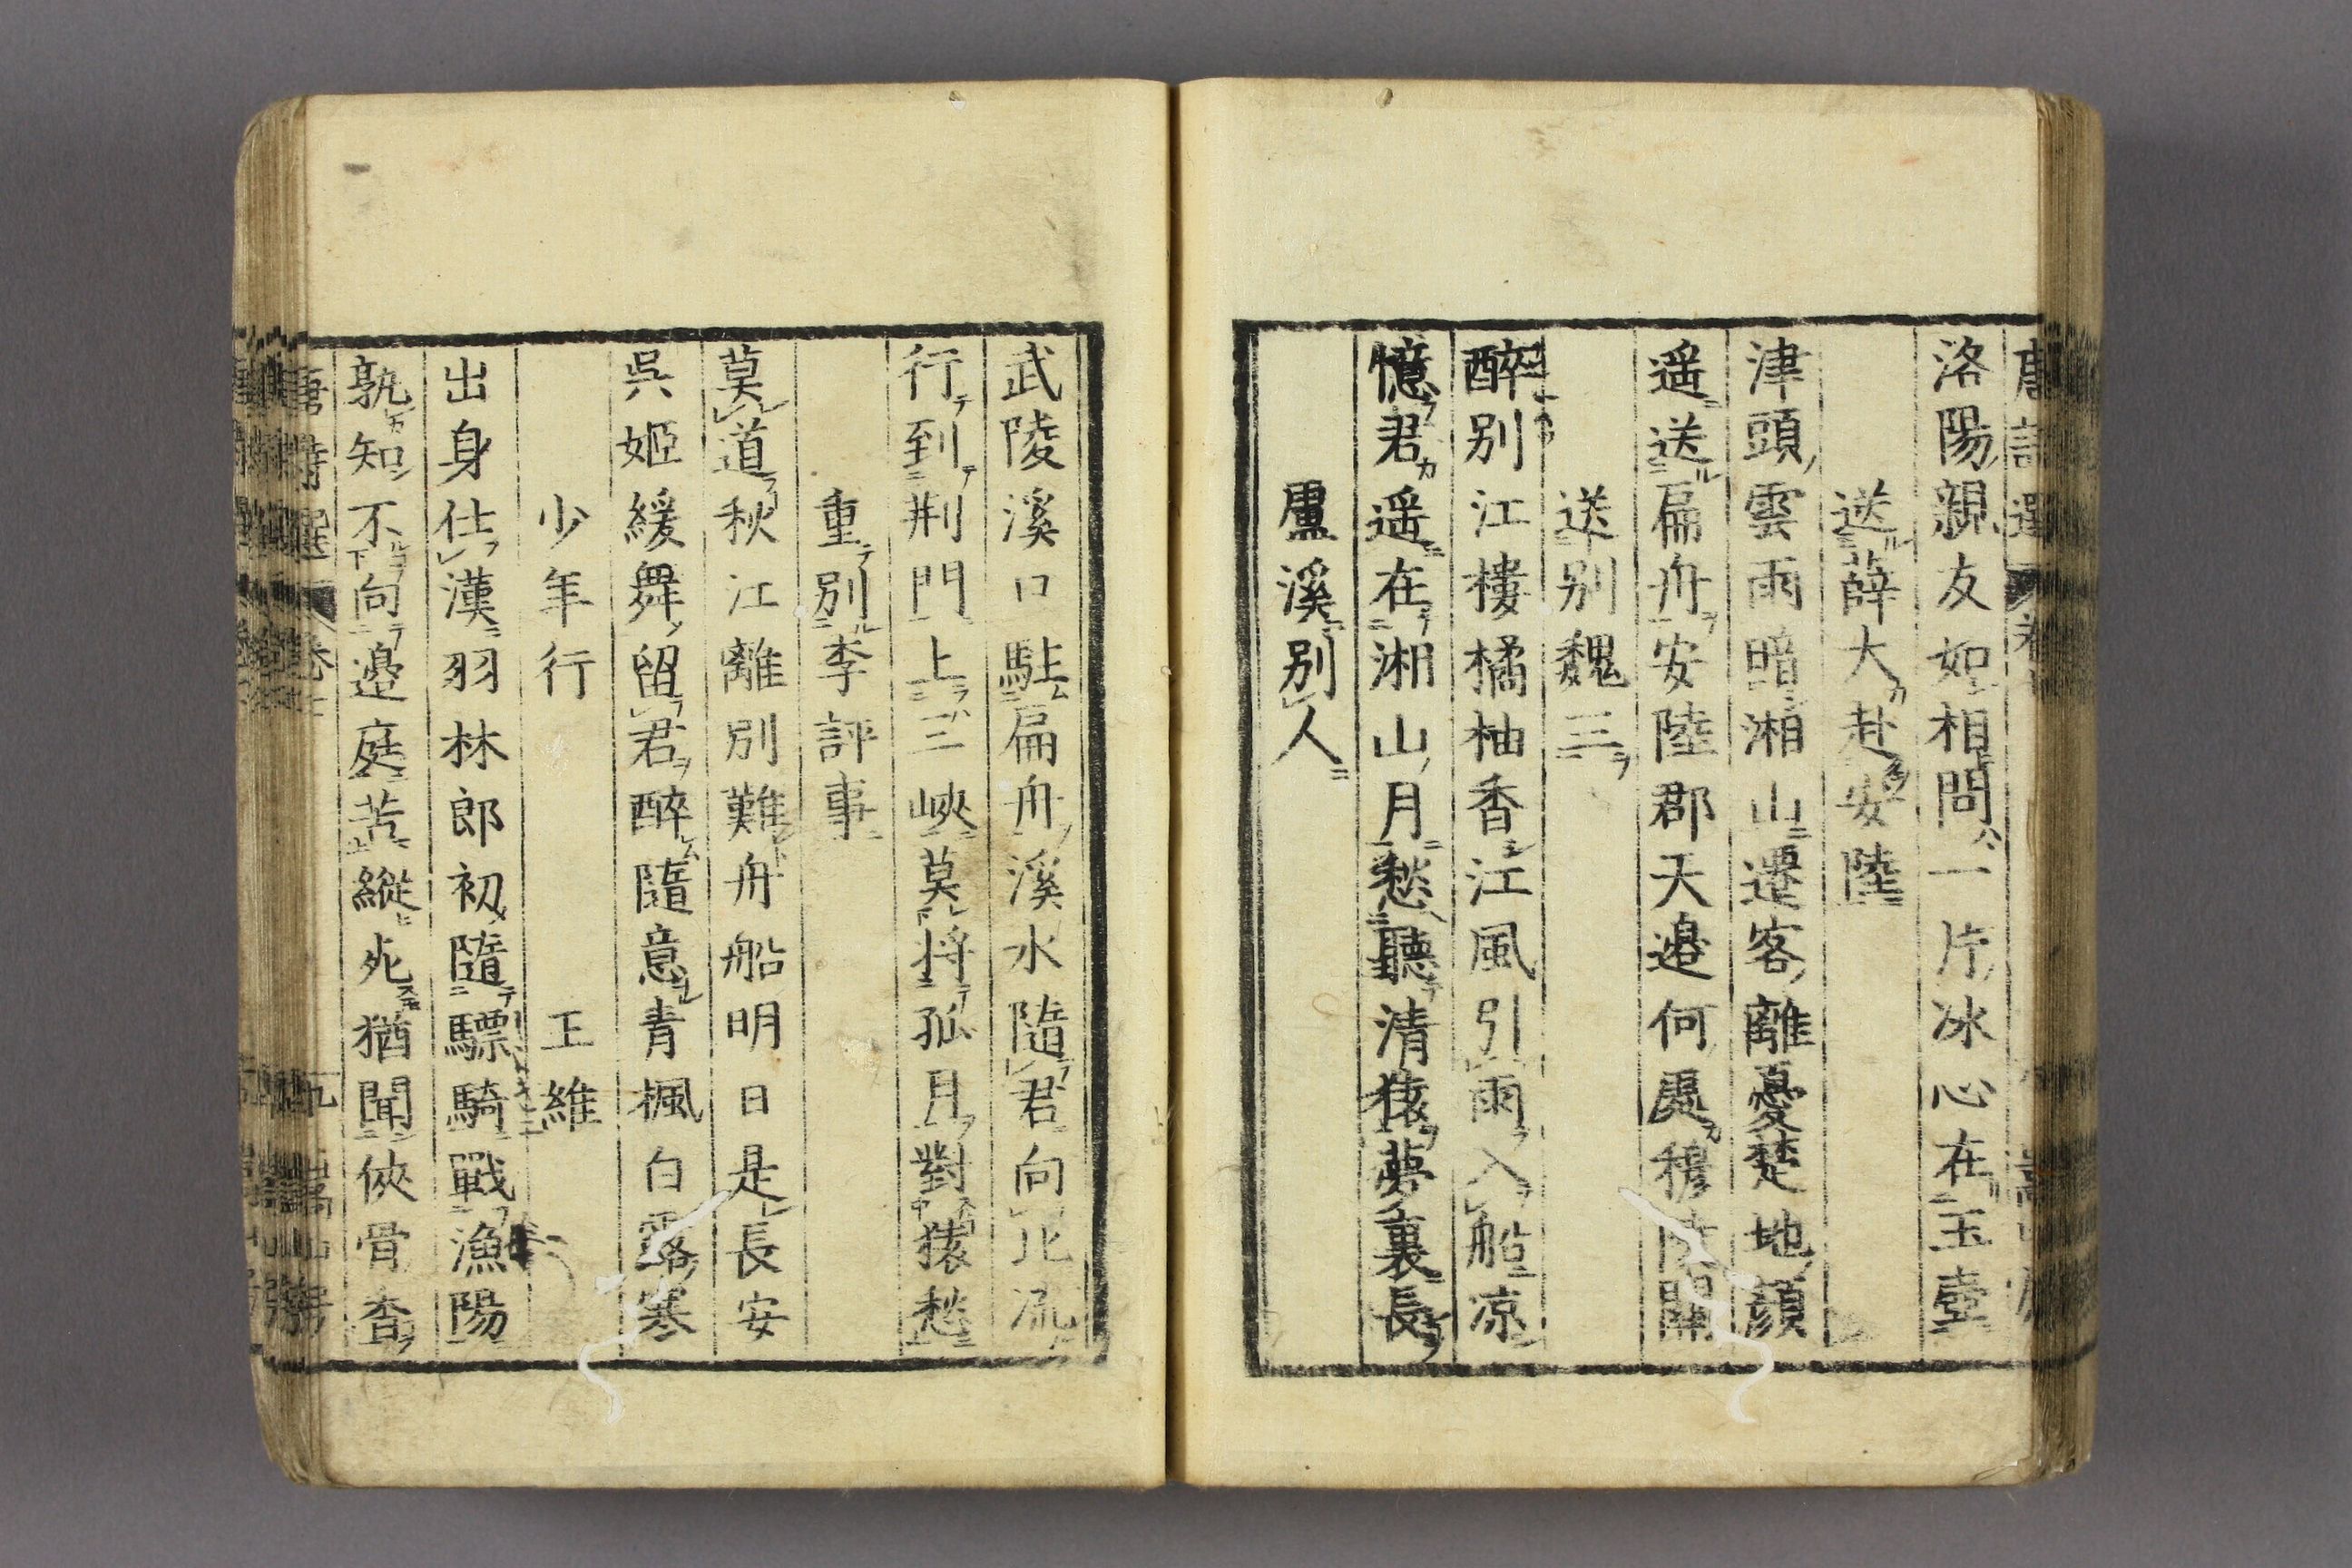 洛陽親友如相問一片冰心在玉壺
送薛大赴安陸
津頭雲雨暗湘山遷客離憂楚地顏
遥送扁舟安陸郡天邉何處穆陵關
送别魏三
醉别江樓橘柚香江風引雨入船凉
憶君遥在湘山月愁聽清猿夢裏長
盧溪别人
武陵溪口駐扁舟溪水隨君向北流
行到荆門上三峽莫將孤月對猿愁
重别李評事
莫道秋江離别難舟船明日是長安
吳姬緩舞留君醉隨意青楓白露寒
少年行 王維
出身仕漢羽林郎初隨驃騎戰漁陽
孰知不向邉庭苦縱死猶聞俠骨香